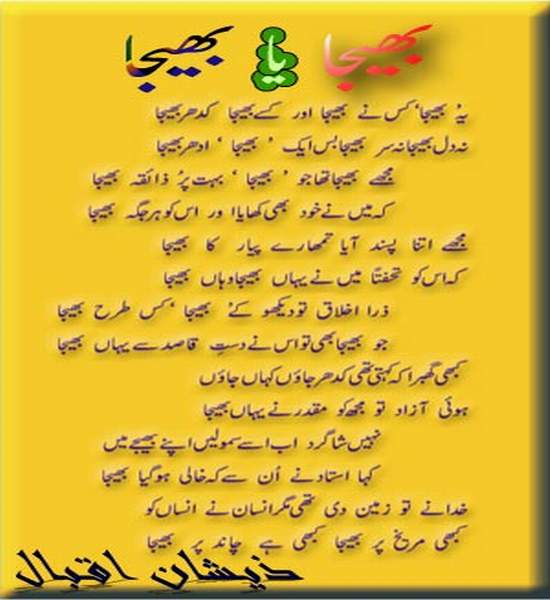 بھیجا یا بھیجا
یہ بھیجا، کس نے بھیجا اور کسے بھیجا کدھر بھیجا
نہ دل بھیجا نہ سر بھیجا بس ایک ' بھیجا ' ادھر بھیجا
مجھے بھیجا تھا جو ' بھیجا ' بہت پرُ ذائقہ بھیجا
کہ میں نے خود بھی کھایا ا ور اس کو ہر جگہ بھیجا
مجھے اتنا پسند آیا تمھارے پیار کا بھیجا
کہ اس کو تحفتاً میں نے یہاں بھیجا وہاں بھیجا
ذرا اخلاق تو دیکھو کے ' بھیجا ' کس طرح بھیجا
جو بھیجا بھی تو اس نے دستِ قاصد سے یہاں بھیجا
کبھی گھبرا کہ کہتی تھی کدھر جاؤں کہاں جاؤں
ہوئی آزاد تو مجھ کو مقدر نے یہاں بھیجا
نہیں شاگرد اب اسے سمولیں اپنے بھیجے میں
کہا استاد نے اُن سے کہ خالی ہوگیا بھیجا
خدا نے تو زمین دی تھی مگر انسان نے انساں کو
کبھی مریخ پر بھیجا کبھی ہے چاند پر بھیجا
ذیشان اقبال